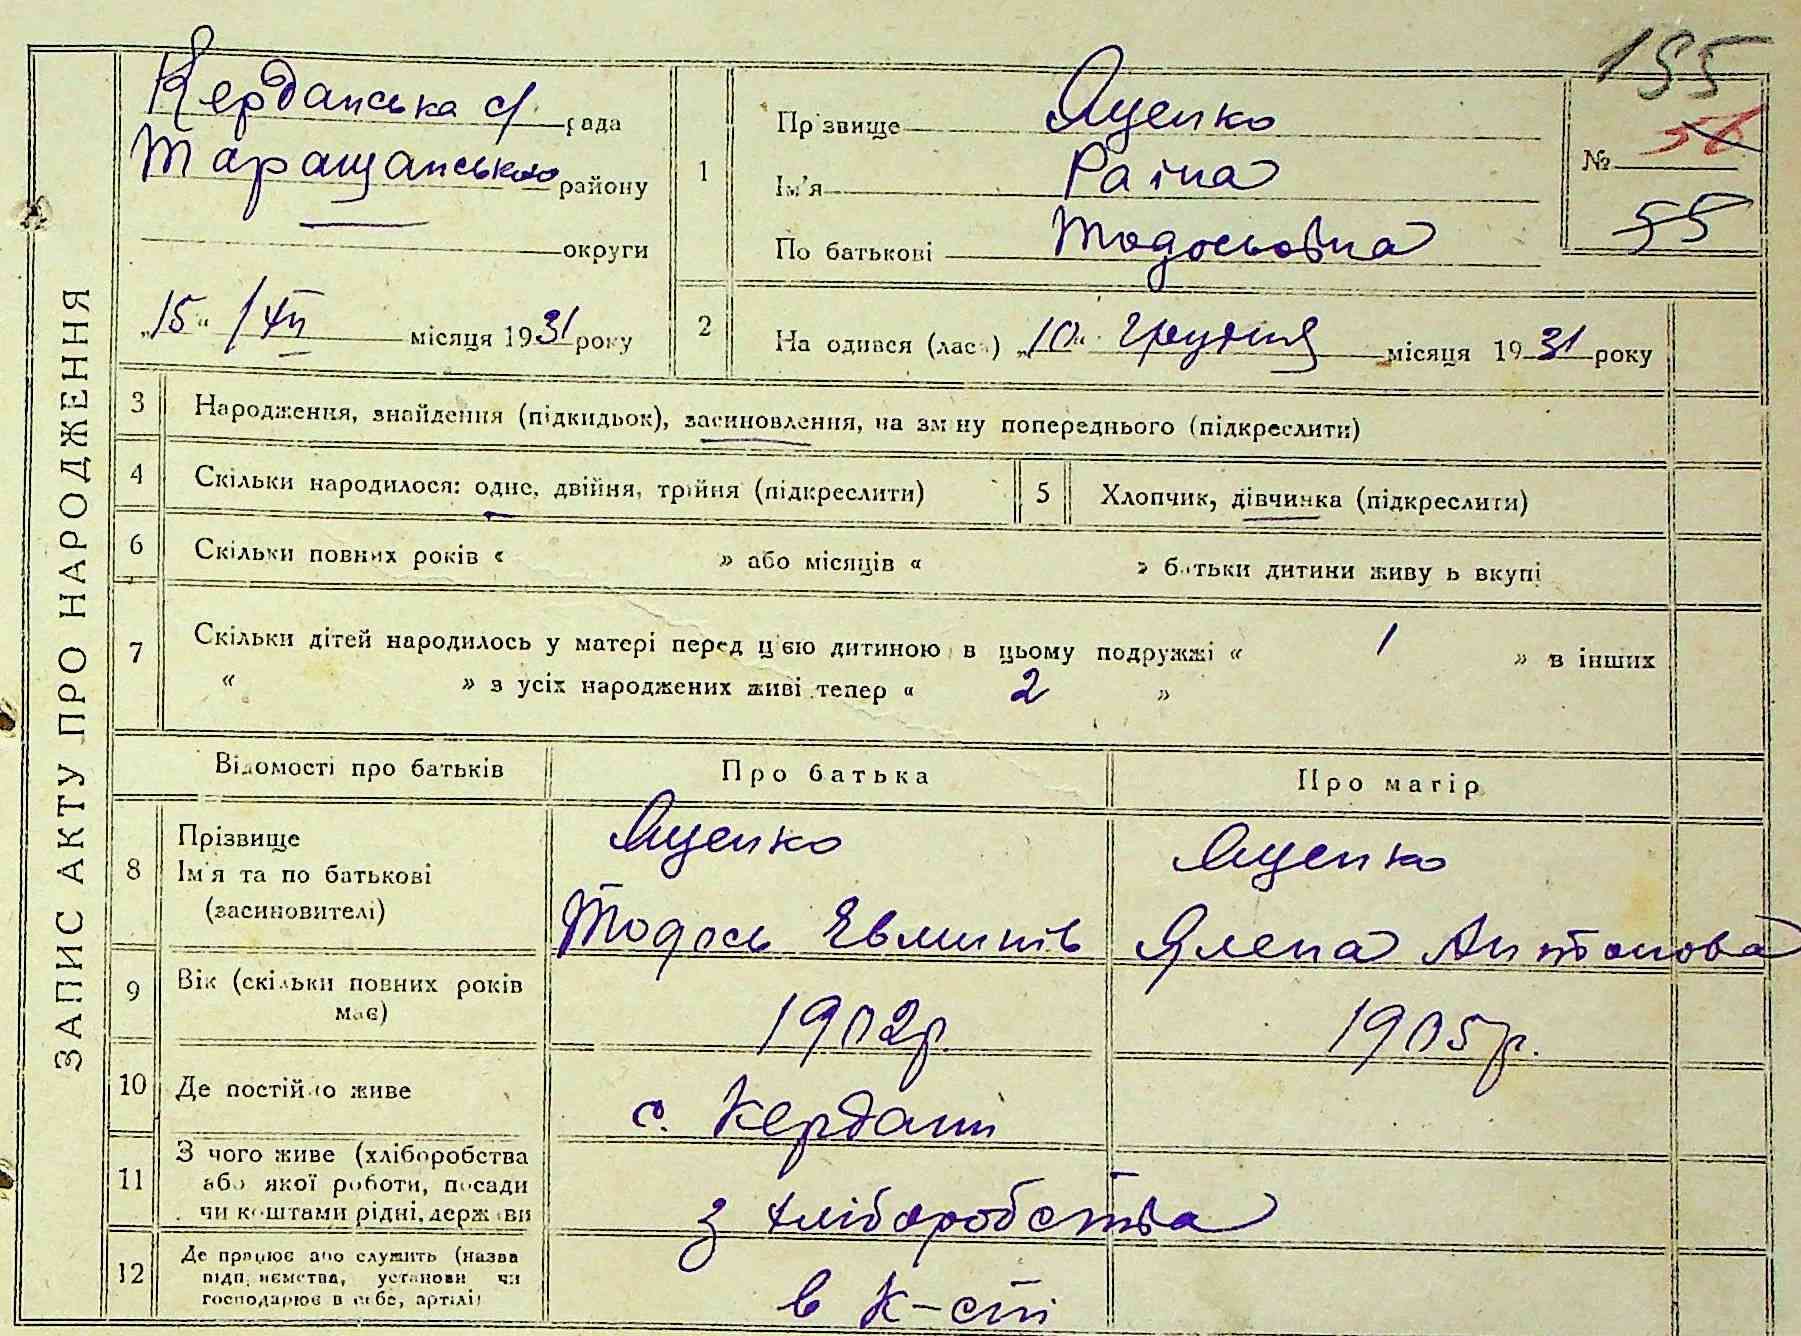 155
ЗАПИС АКТУ ПРО НАРОДЖЕННЯ
Керданська с/рада
Таращанського району
округи
„15“ /XII місяця 1931 року
1
Прізвище Яценко
Ім'я Раіна
По батькові Тодосьовна
№ 56
55
2
Народився (лася) „10“ грудня місяця 1931 року
3 Народження, знайдення (підкидьок), засиновлення, на зміну попереднього (підкреслити)
4 Скільки народилося: одне, двійня, трійня (підкреслити)
5 Хлопчик, дівчинка (підкреслити)
6 Скільки повних років « » або місяців « » батьки дитини живуть вкупі
7 Скільки дітей народилось у матері перед цією дитиною в цьому подружжі « 1 » в інших
« » з усіх народжених живі тепер « 2 »
Відомості про батьків Про батька Про матір
8 Прізвище
Ім'я та по батькові
(засиновителі)
Яценко
Тодось
Яценко
Ялена Антонова
9 Вік (скільки повних років
має)
1902р.
1905р.
10 Де постійно живе
с. Кердани
11 З чого живе (хліборобства
або якої роботи, посади
чи коштами рідні, держави
з хліборобства
12 Де працює або служить (назва
підприємства, установи чи
господарює в себе, артілі)
в к-сті